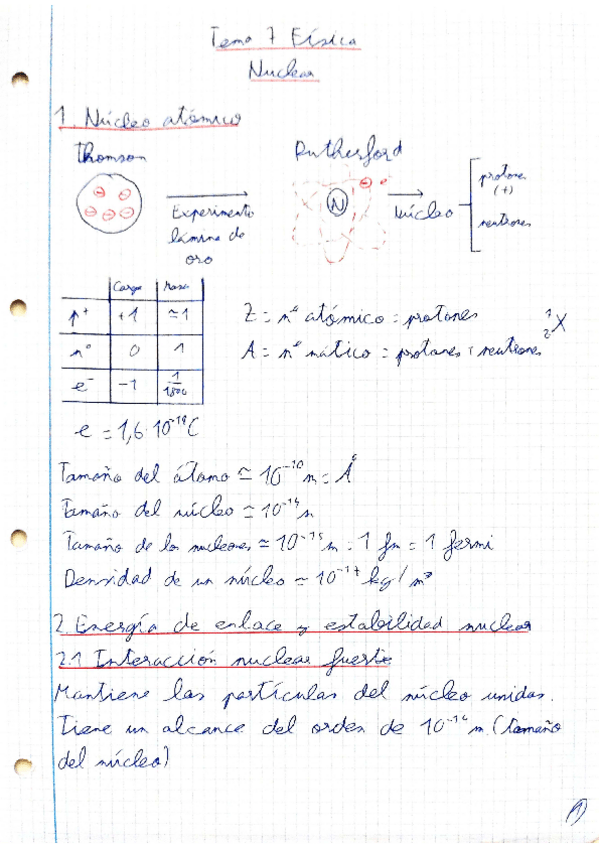 Tema 7 Física
Nuclear
1. Núcleo atómico
Thomson
Rutherford
Experimento
lámina de
oro
N
Núcleo
protones
(+)
neutrones
Carga Masa
p⁺ +1 ≃1
n⁰ 0 1
e⁻ -1 1/1800
Z = nº atómico = protones
A = nº mático = protones + neutrones
X
e = 1,6·10⁻¹⁹ C
Tamaño del átomo ≃ 10⁻¹⁰ m = Å
Tamaño del núcleo ≃ 10⁻¹⁴ m
Tamaño de los nucleones ≃ 10⁻¹⁵ m = 1 fm = 1 fermi
Densidad de un núcleo ≃ 10⁻¹⁷ kg/m³
2. Energía de enlace y estabilidad nuclear
2.1 Interacción nuclear fuerte
Mantiene las partículas del núcleo unidas.
Tiene un alcance del orden de 10⁻¹⁴ m (Tamaño
del núcleo)
1